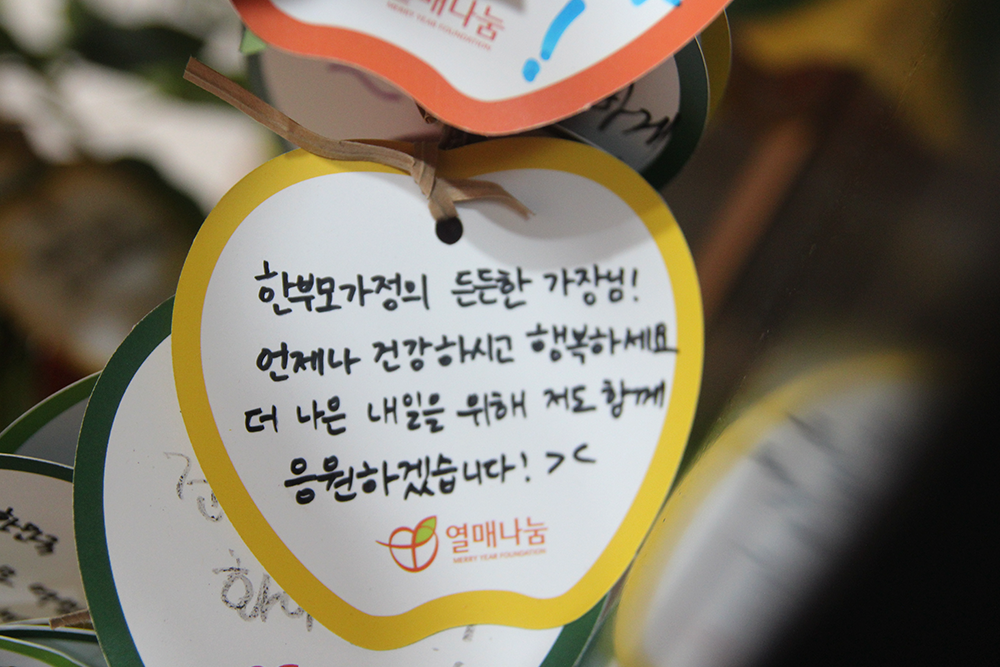 매나눔
MERRY YEAR FOUNDATION
한부모가정의 든든한 가장님!
언제나 건강하시고 행복하세요
더 나은 내일을 위해 저도 함께
응원하겠습니다! ><
열매나눔
MERRY YEAR FOUNDATION